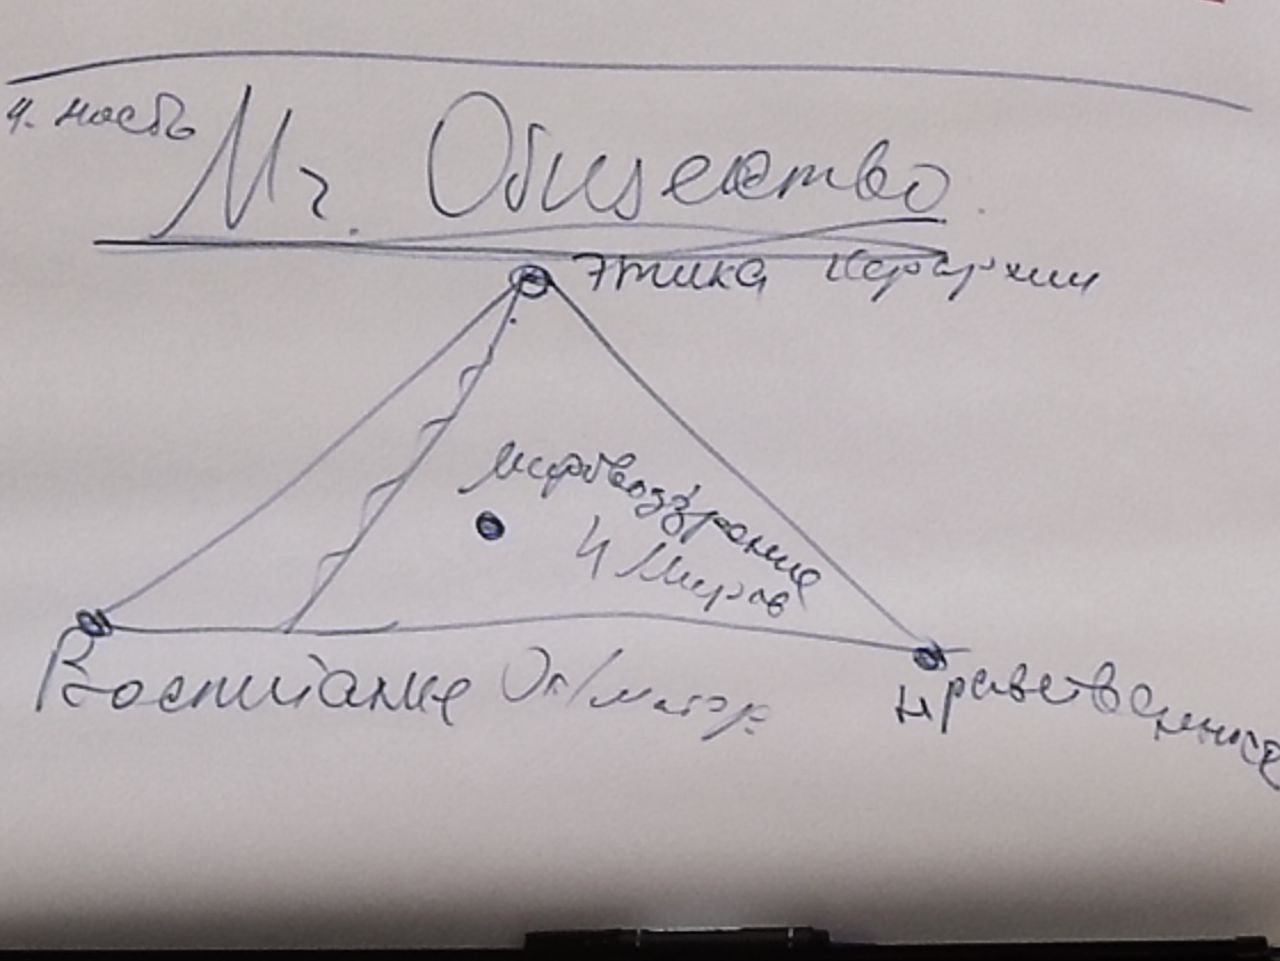 ч. ность
Мг. Общество
Этика Иерархии
Мировоззрение
4 Миров
Воспитание От/матер.
Нравственнос